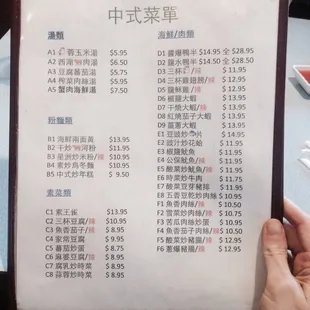 中式菜單
湯類
A1 蓉玉米湯 $5.95
A2 西湖 肉湯 $5.95
A3 豆腐蕃茄湯 $5.75
A4 榨菜肉絲湯 $5.95
A5 蟹肉海鮮湯 $7.50
粉麵類
B1 海鮮兩面黃 $13.95
B2 干炒 河粉 $11.95
B3 星洲炒米粉/辣 $10.95
B4 素炒烏冬麵 $10.95
B5 中式炒年糕 $ 9.50
素菜類
C1 素王雀 $13.95
C2 三杯豆腐/辣 $10.95
C3 魚香茄子/辣 $ 8.95
C4 家常豆腐 $ 9.95
C5 蕃茄炒蛋 $ 8.75
C6 麻婆豆腐/辣 $ 8.95
C7 腐乳炒時菜 $ 8.95
C8 蒜蓉炒時菜 $ 8.95
海鮮/肉類
D1 醬爆鴨半 $14.95 全 $28.95
D2 鹽水鴨半 $14.50 全 $28.50
D3 三杯 /辣 $11.95
D4 三杯雞翅膀/辣 $11.95
D5 鹽酥雞/辣 $12.95
D6 椒鹽大蝦 $13.95
D7 干燒大蝦/辣 $13.95
D8 紅燒茄子大蝦 $13.95
D9 薑蔥大蝦 $13.95
E1 豆豉炒 片 $14.95
E2 豉汁炒花蛤 $11.95
E3 椒鹽魷魚 $11.95
E4 公保魷魚/辣 $11.95
E5 酸菜炒魷魚/辣 $11.95
E6 時菜炒牛肉 $11.75
E7 酸菜豆芽豬排 $11.95
E8 五香豆乾炒肉絲 $10.95
F1 魚香肉絲/辣 $10.50
F2 雪菜炒肉絲/辣 $10.95
F3 苦瓜肉絲炒蛋 $10.95
F4 魚香茄子肉絲/辣 $10.50
F5 酸菜炒豬肚/辣 $12.95
F6 蔥爆豬腸/辣 $12.95